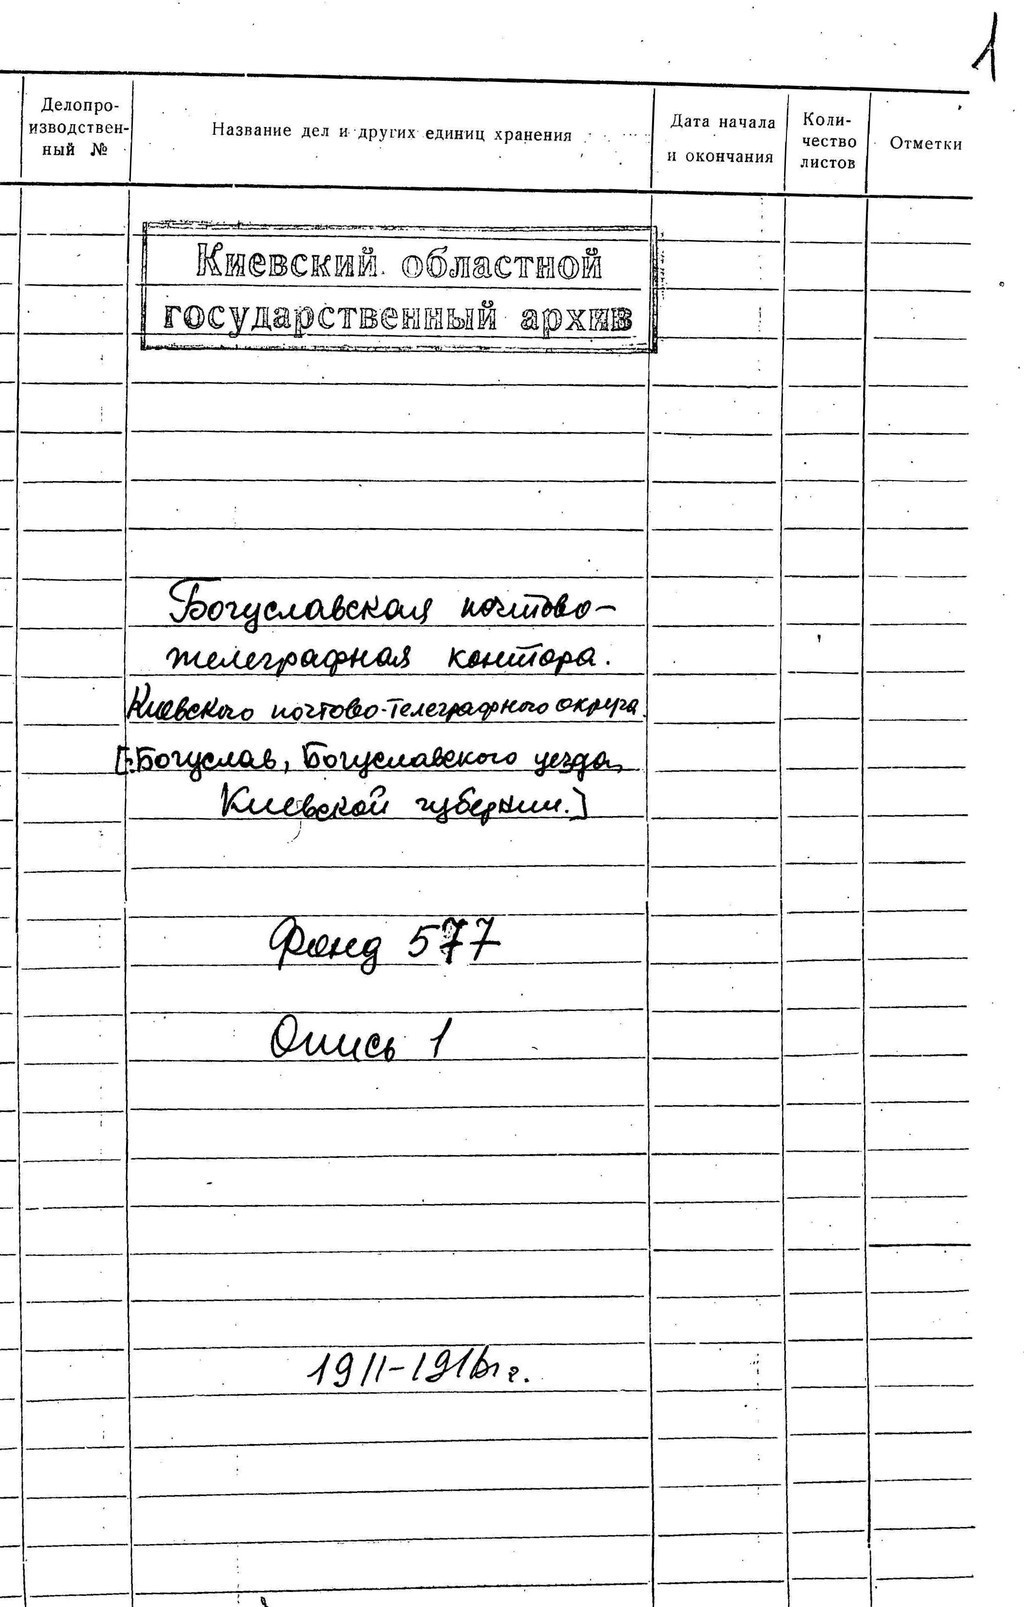 1
Делопро-
изводствен-
ный №
Название дел и других единиц хранения
Дата начала
и окончания
Коли-
чество
листов
Отметки
Киевский областной
государственный архив
Богуславская почтово-
телеграфная контора.
Киевского почтово-телеграфного округа.
Богуслав, Богуславского уезда,
Киевской губернии.]
Фонд 577
Опись 1
1911-1916 г.